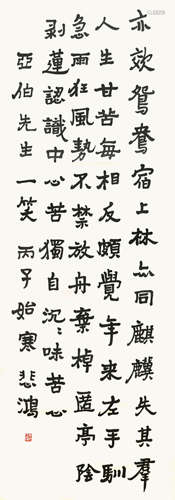 亦效鴛鴦宿上林亦同麒麟失其羣
人生甘苦每相反頗覺年來左手馴
急雨狂風勢不禁放舟棄棹匿亭陰
剥蓮認識中心苦獨自沉〻味苦心
亞伯先生一笑 丙子始寒悲鴻